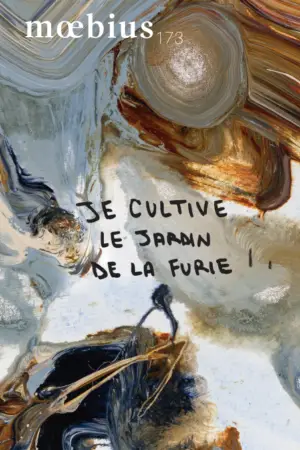 mœbius 173
JE CULTIVE
LE JARDIN
DE LA FURIE